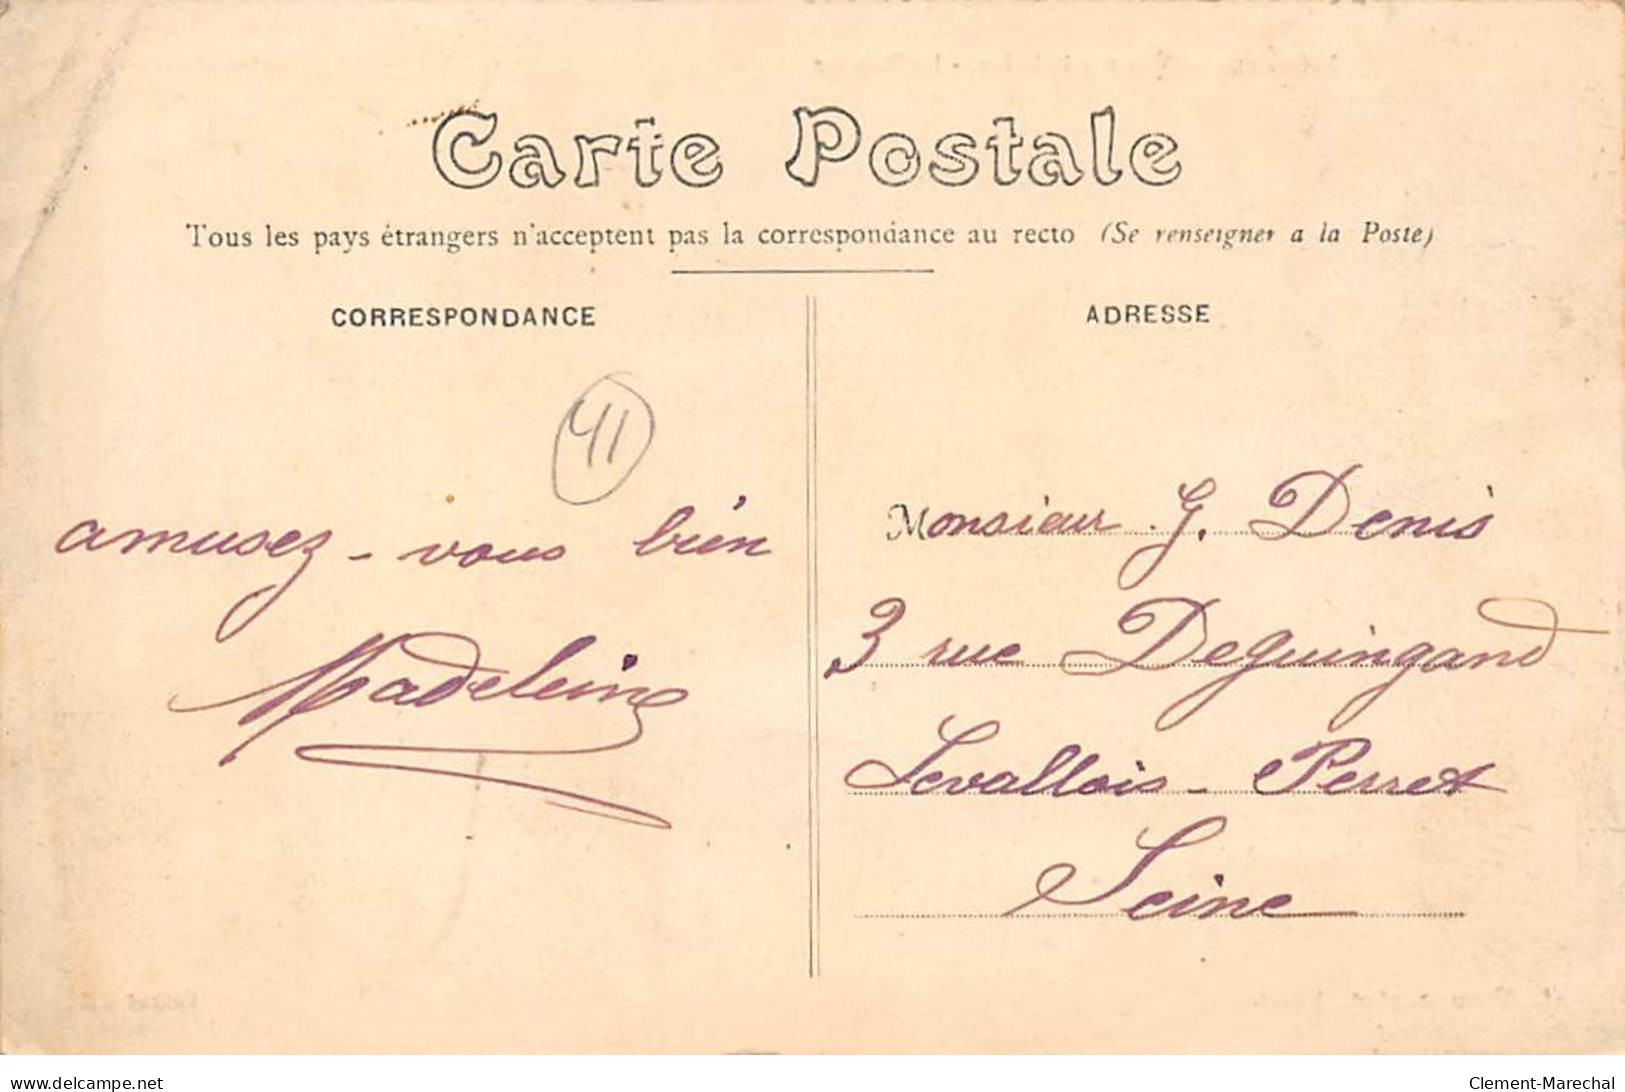 Carte Postale
Tous les pays étrangers n'acceptent pas la correspondance au recto (Se renseigner a la Poste)
CORRESPONDANCE
ADRESSE
41
amusez-vous bien
Madeleine
Monsieur G. Denis
3 rue Deguingand
Levallois-Perret
Seine
www.delcampe.net
Clement-Marechal